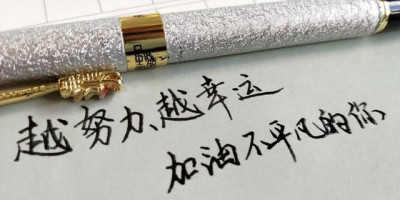 越努力、越幸运
加油不平凡的你